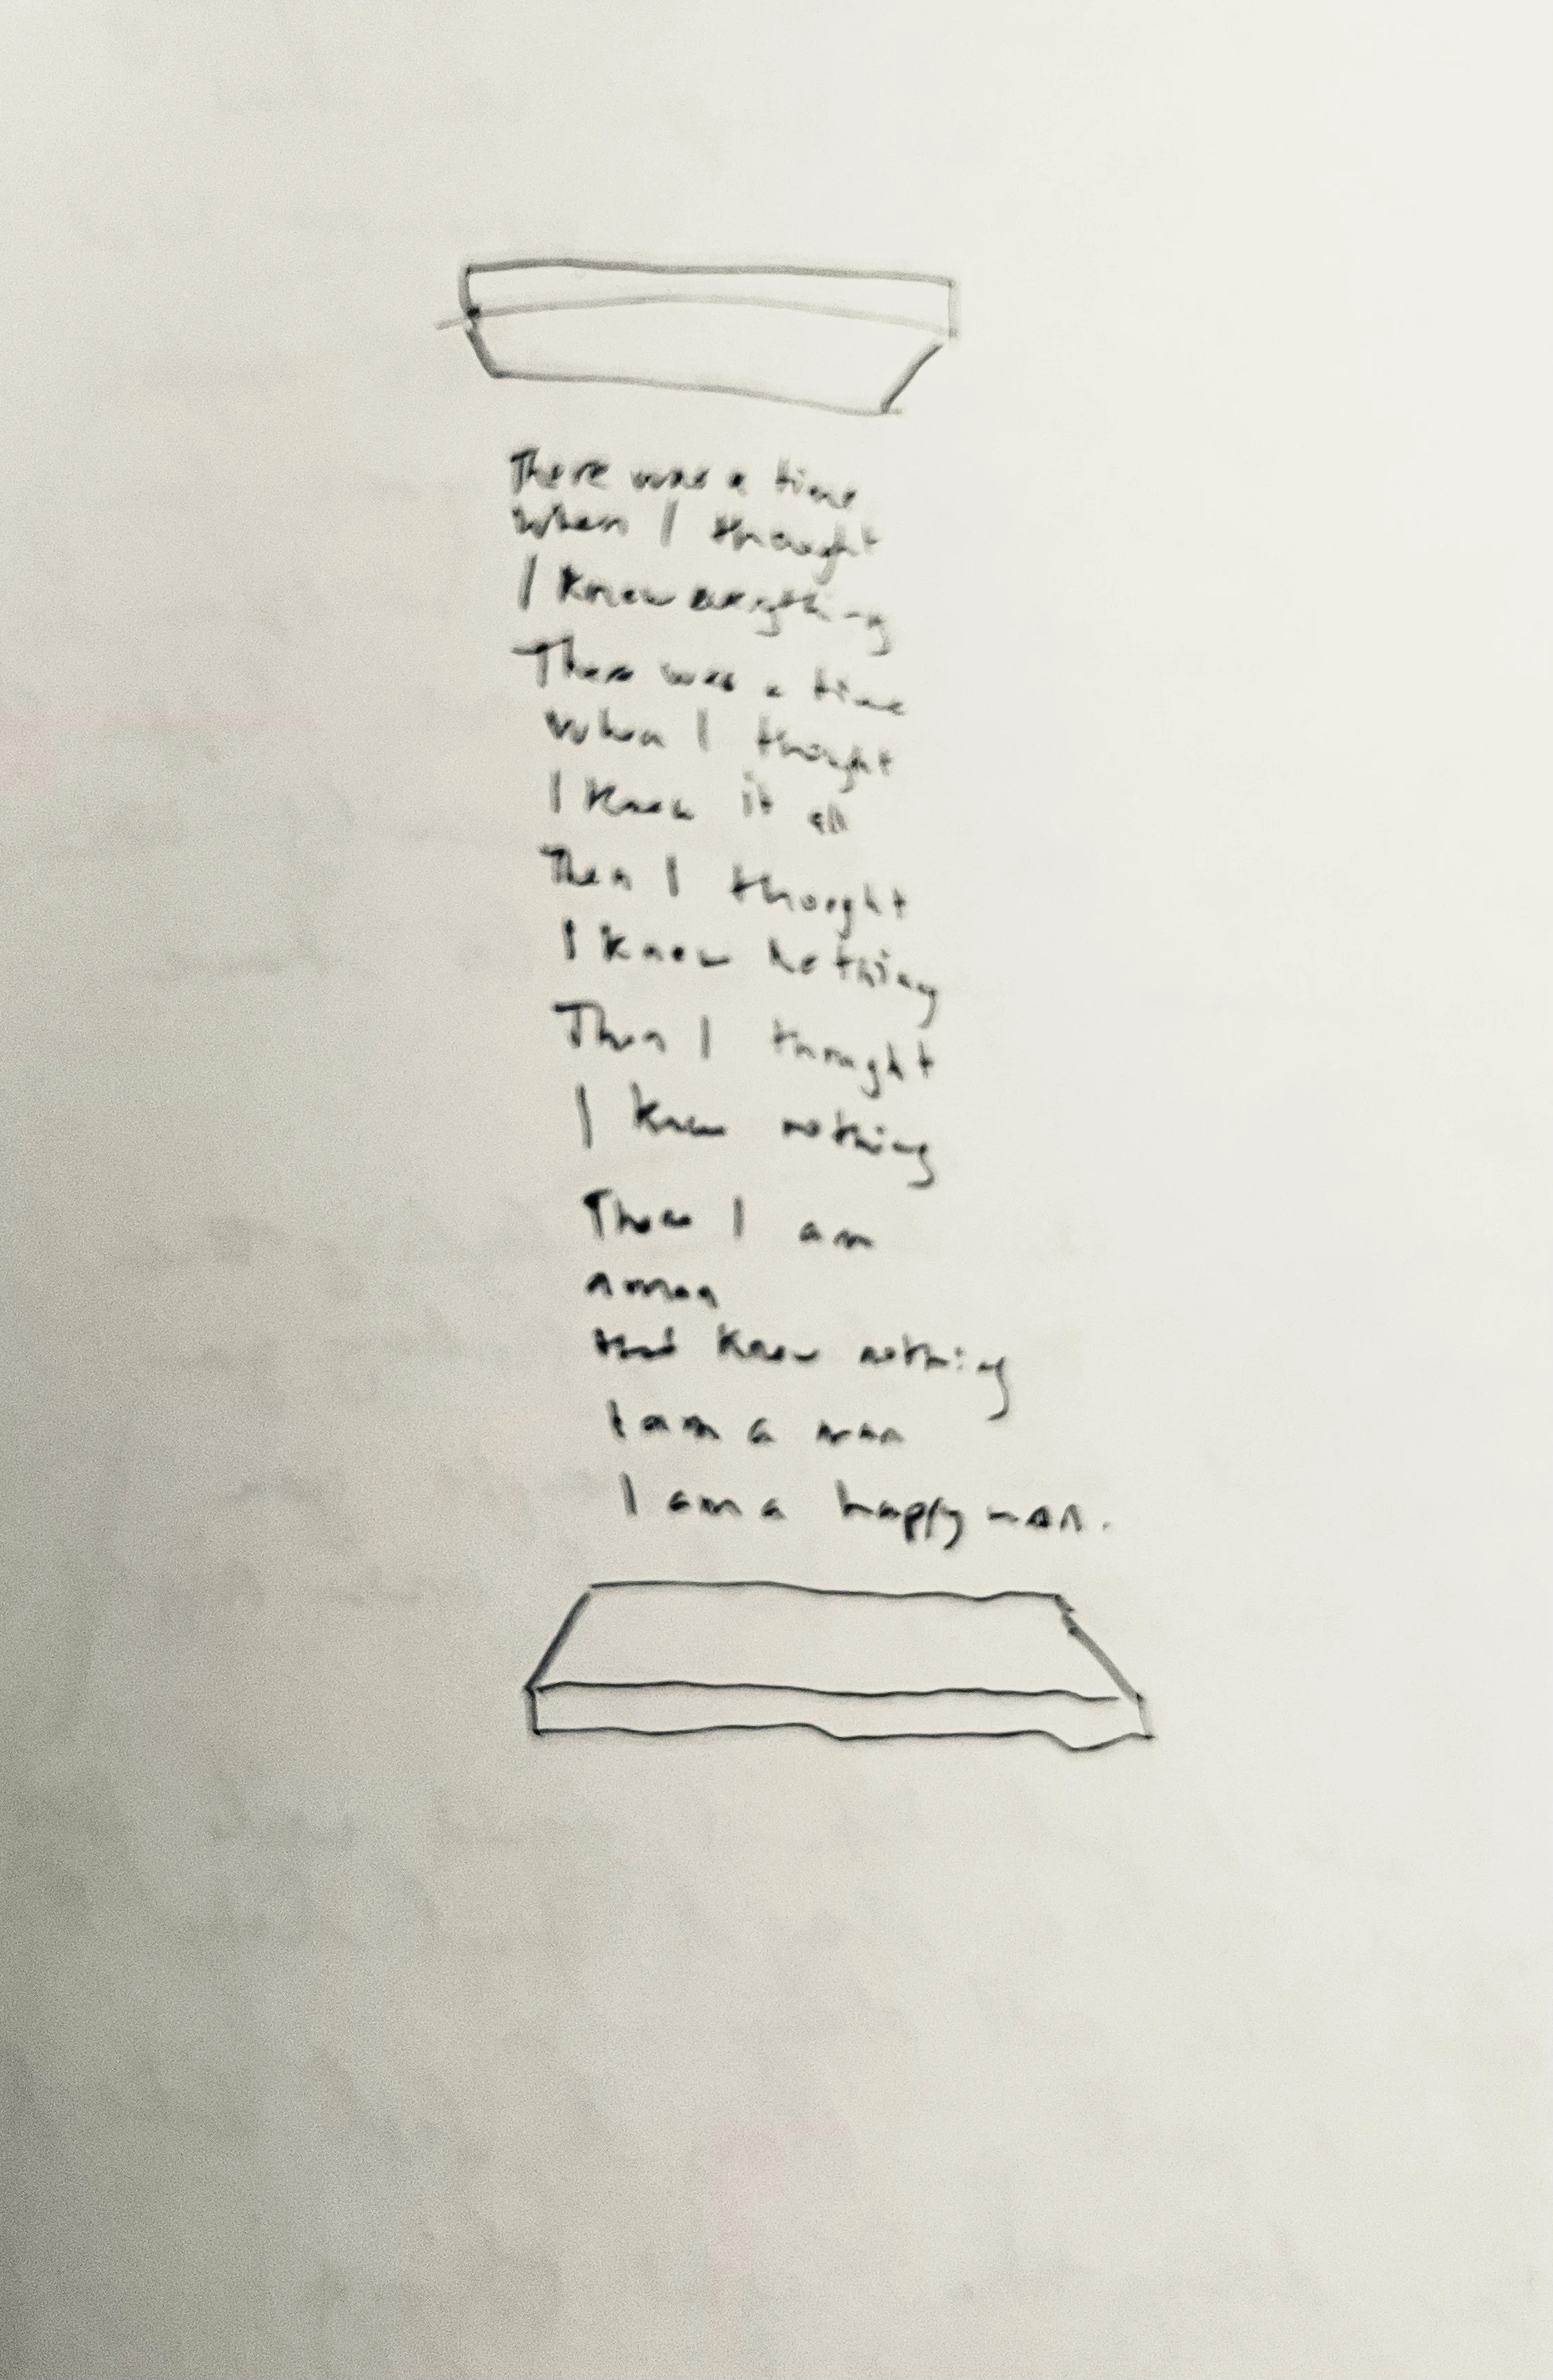 There was a time
When I thought
I knew everything
There was a time
When I thought
I knew it all
Then I thought
I knew nothing
Then I thought
I knew nothing
Then I am
a man
that know nothing
I am a man
I am a happy man.